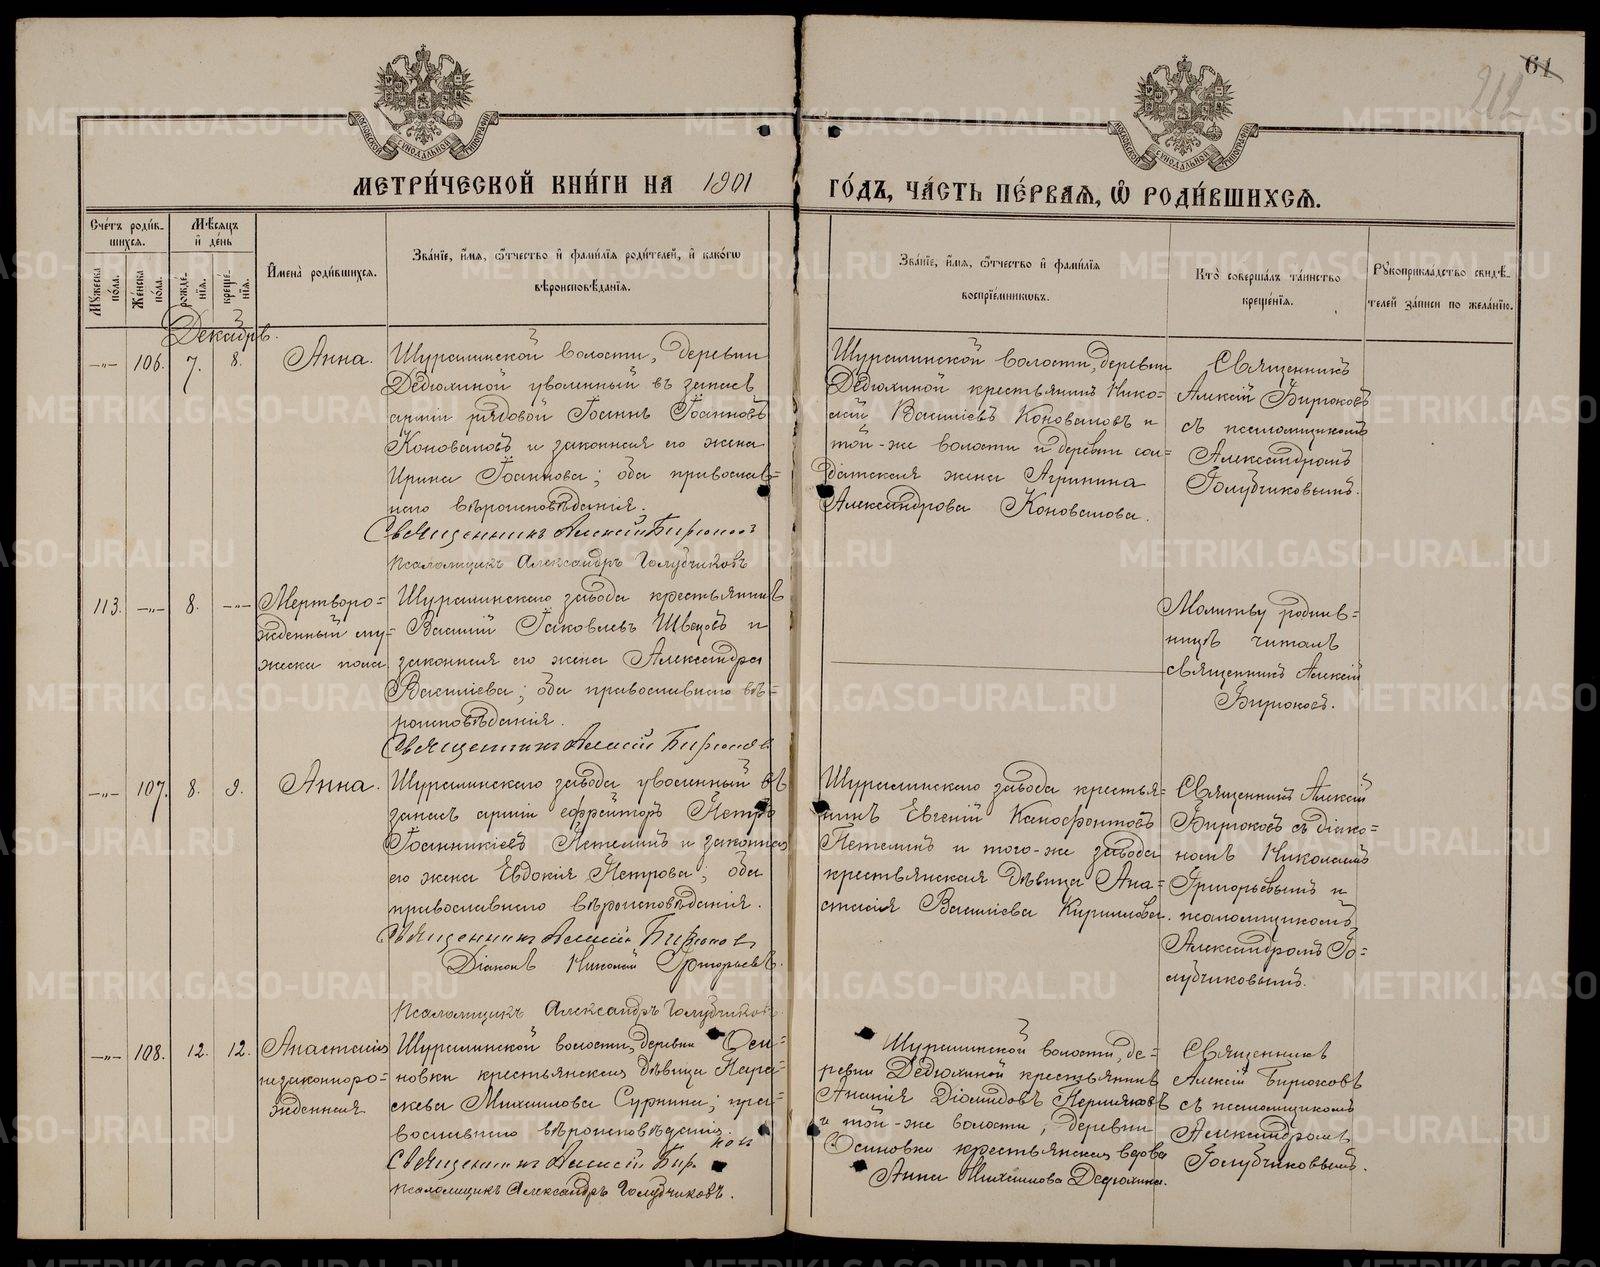 61
212
МОСКОВСКОЙ СУНОДАЛЬНОЙ ТИПОГРАФІИ
МОСКОВСКОЙ СУНОДАЛЬНОЙ ТИПОГРАФІИ
МЕТРИ́ЧЕСКОЙ КНИ́ГИ НА 1901
ГО́ДЪ, ЧА́СТЬ ПЕ́РВАѦ, Ѡ҆ РОДИ́ВШИХСѦ.
Сче́тъ роди́в-
шихся.
Мѣ́сяцъ
и҆ де́нь
Мꙋ́жеска по́ла.
Же́нска по́ла.
рожде́-
нїѧ.
креще́-
нїѧ.
И҆мена̀ роди́вшихсѧ.
Зва́нїе, и҆́мѧ, ѻ҆́тчество и҆ фами́лїѧ роди́телей, и҆ како́гѡ
вѣроисповѣ́данїѧ.
Зва́нїе, и҆́мѧ, ѻ҆́тчество и҆ фами́лїѧ
воспрїе́мникѡвъ.
Кто̀ соверша́лъ та́инство
креще́нїѧ.
Рꙋкоприкла́дство свидѣ́-
телей за́писи по жела́нїю.
Декабрь.
—„— 106. 7. 8. Анна.
Шуралинской волости, деревни
Дедюхиной уволенный въ запасъ
арміи рядовой Іоаннъ Іоанновъ
Коноваловъ и законная его жена
Ирина Іоаннова; оба православ-
наго вѣроисповѣданія.
Священникъ Алексій Бирюковъ
Псаломщикъ Александръ Голубчиковъ
Шуралинской волости, деревни
Дедюхиной крестьянинъ Нико-
лай Василіевъ Коноваловъ и
той-же волости и деревни сол-
датская жена Агрипина
Александрова Коновалова.
Священникъ
Алексій Бирюковъ
съ псаломщикомъ
Александромъ
Голубчиковымъ.
113. —„— 8. —„— Мертворо-
жденный му-
жеска пола
Шуралинскаго завода крестьянинъ
Василій Іаковлевъ Швецовъ и
законная его жена Александра
Василіева; оба православнаго вѣ-
роисповѣданія.
Священникъ Алексій Бирюковъ
Молитву родиль-
ницѣ читалъ
священникъ Алексій
Бирюковъ.
—„— 107. 8. 9. Анна.
Шуралинскаго завода уволенный въ
запасъ арміи ефрейторъ Петръ
Іоанникіевъ Петелинъ и законная
его жена Евдокія Петрова; оба
православнаго вѣроисповѣданія.
Священникъ Алексій Бирюковъ
Діаконъ Николай Григорьевъ.
Псаломщикъ Александръ Голубчиковъ.
Шуралинскаго завода крестья-
нинъ Евгеній Ксенофонтовъ
Петелинъ и того-же завода
крестьянская дѣвица Ана-
стасія Василіева Кириллова.
Священникъ Алексій
Бирюковъ съ діако-
номъ Николаемъ
Григорьевымъ и
псаломщикомъ
Александромъ Го-
лубчиковымъ.
—„— 108. 12. 12. Анастасія
незаконноро-
жденная
Шуралинской волости, деревни Оси-
новки крестьянская дѣвица Пара-
скева Михаилова Сурнина; пра-
вославнаго вѣроисповѣданія.
Священникъ Алексій Бирюковъ
Псаломщикъ Александръ Голубчиковъ.
Шуралинской волости, де-
ревни Дедюхиной крестьянинъ
Ананія Діомидовъ Пермяковъ
и той-же волости, деревни
Осиновки крестьянская вдова
Анна Михаилова Дедюхина.
Священникъ
Алексій Бирюковъ
съ псаломщикомъ
Александромъ
Голубчиковымъ.
METRIKI.GASO-URAL.RU